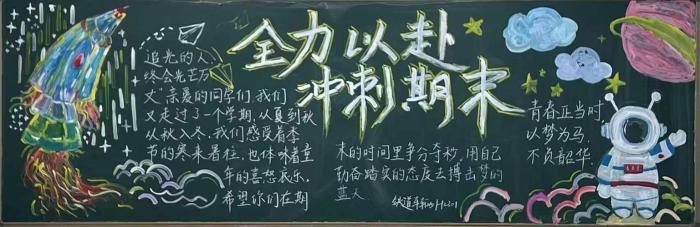 全力以赴
冲刺期末
追光的人,
终会光芒万
丈"亲爱的同学们,我们
又走过了一个学期,从夏到秋
从秋入冬,我们感受着季
节的寒来暑往,也体味着童
年的喜怒哀乐,
希望你们在期
末的时间里争分夺秒,用自己
勤奋踏实的态度去搏击梦的
蓝天
青春正当时,
以梦为马,
不负韶华.